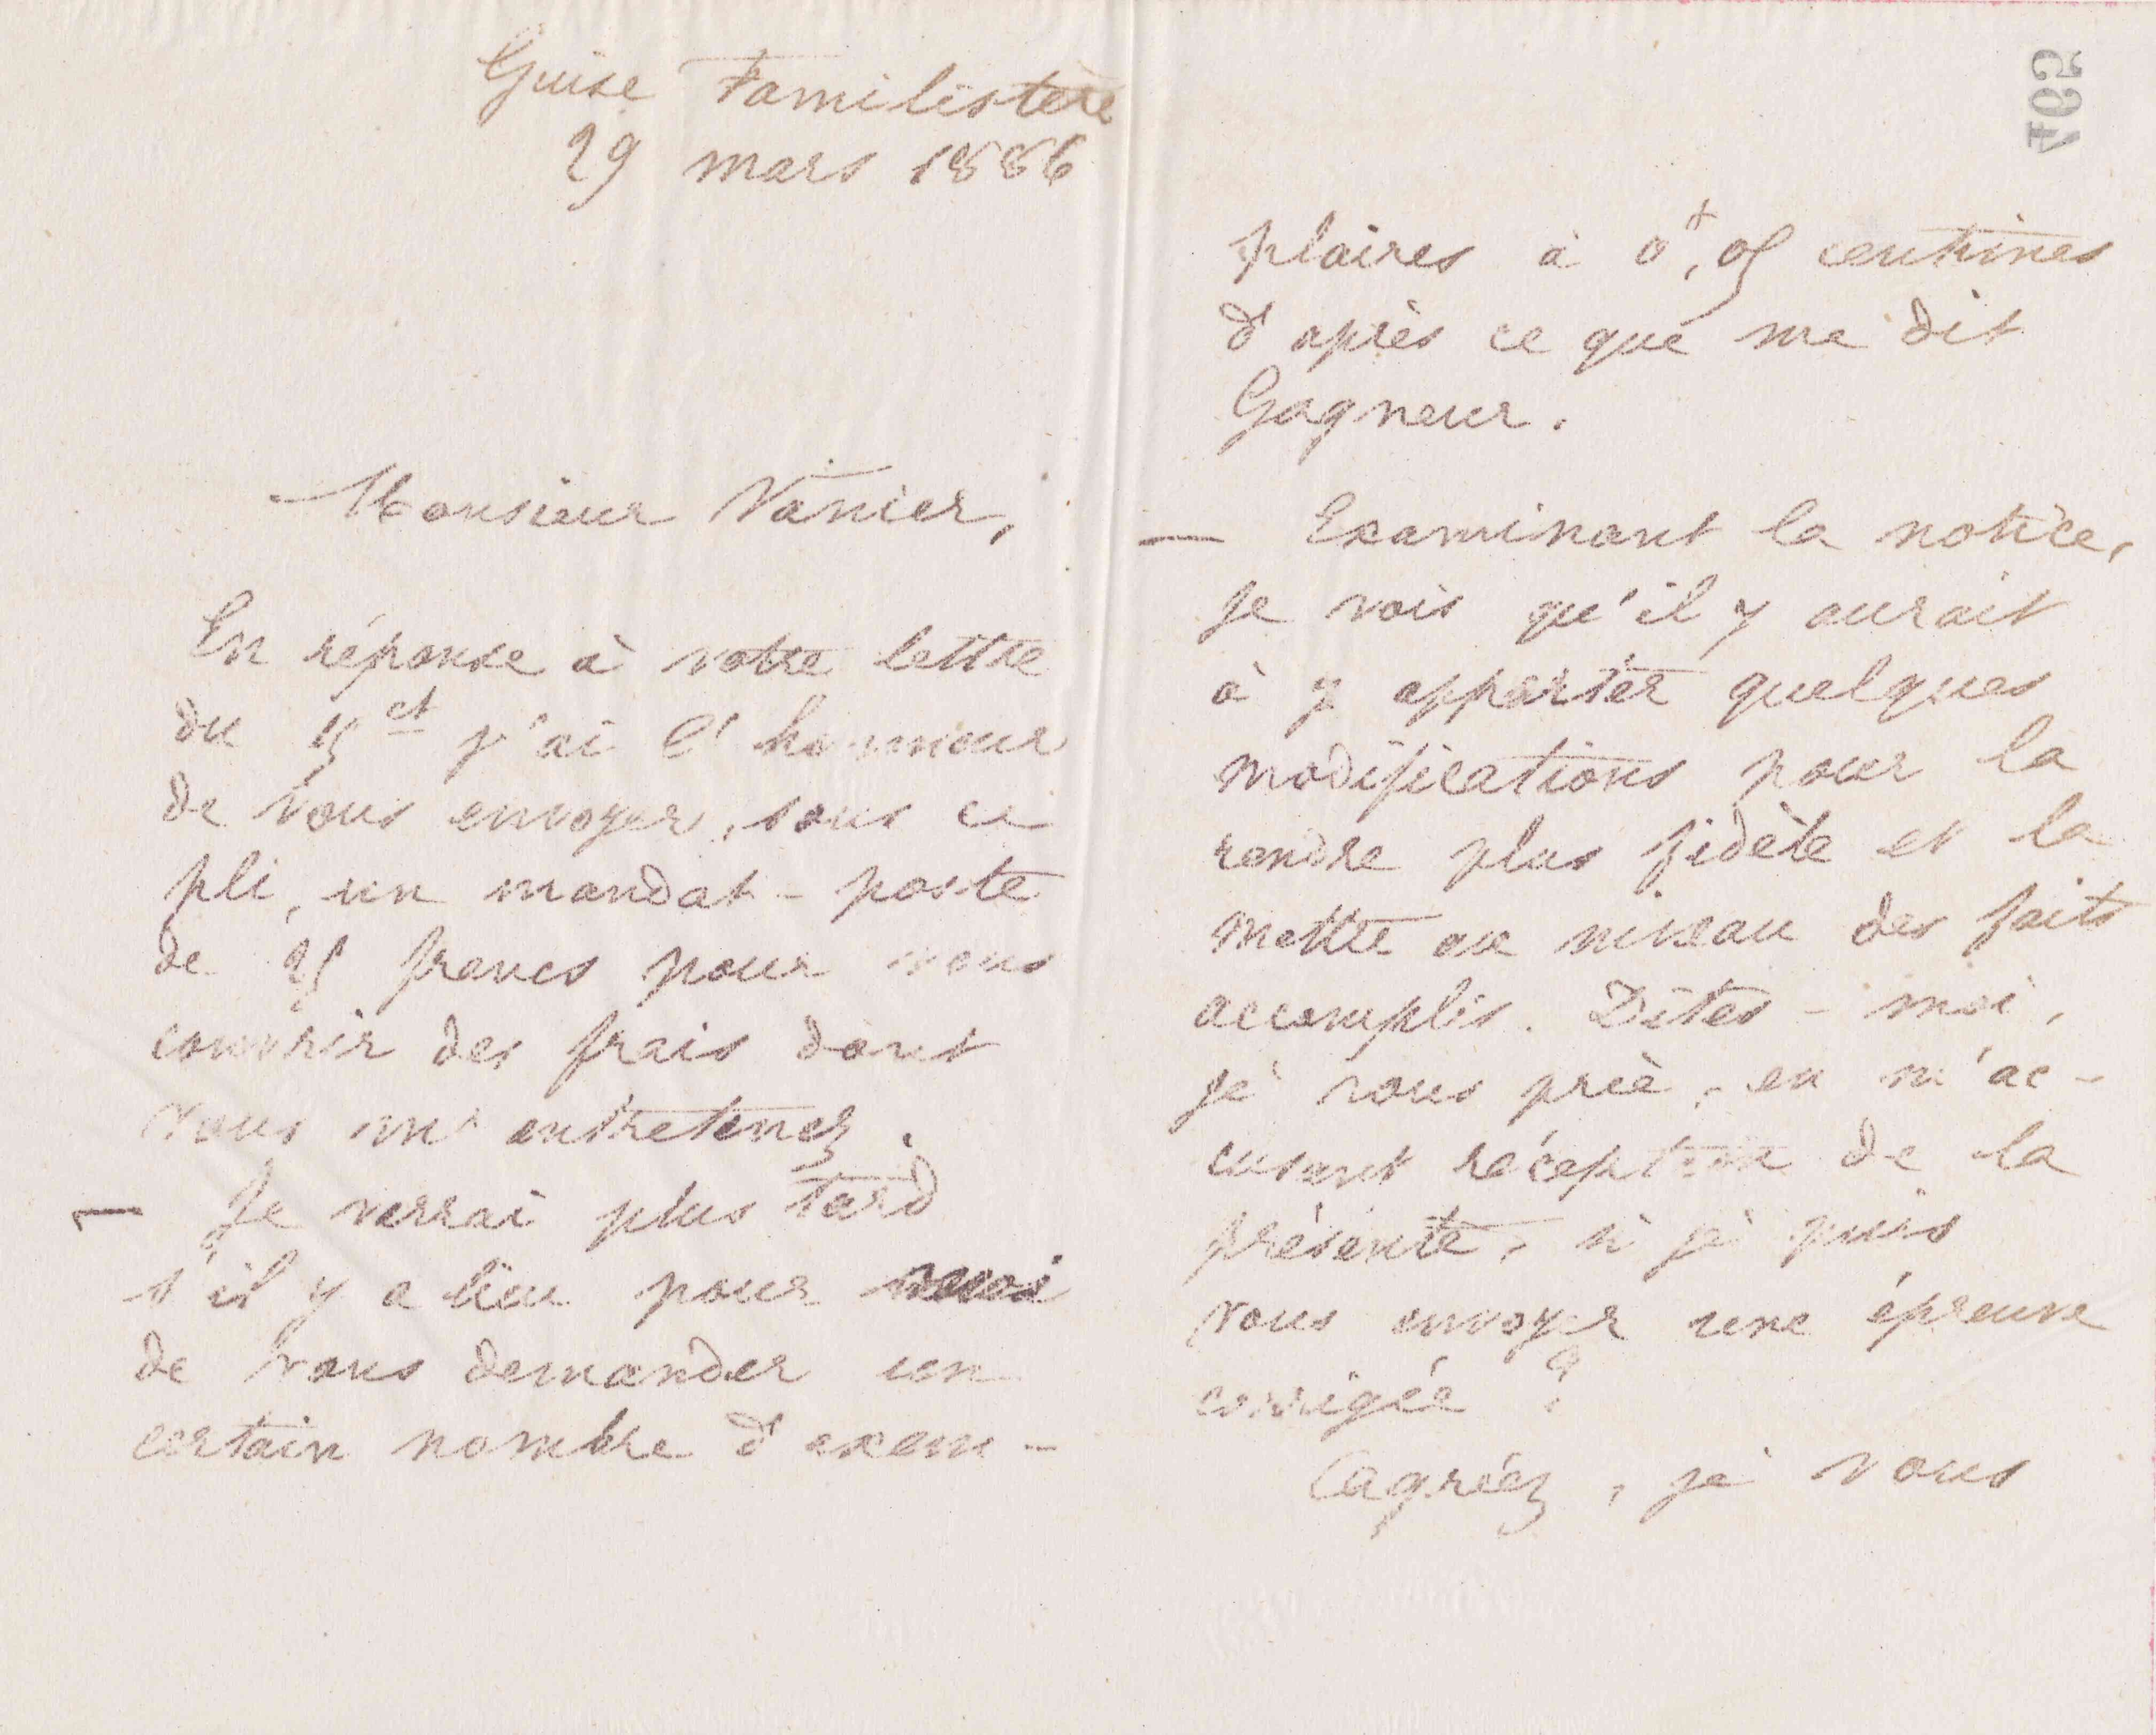 Guise Familistère
29 mars 1886
Monsieur Vanier,
En réponse à votre lettre
du 15 ct j'ai l'honneur
de vous envoyer, sous ce
pli, un mandat-poste
de 25 francs pour vous
couvrir des frais dont
vous m'entretenez.
— Je verrai plus tard
s'il y a lieu pour moi
de vous demander un
certain nombre d'exem-
465
plaires à 0f,05 centimes
d'après ce que me dit
Gagneur.
— Examinant la notice,
je vois qu'il y aurait
à y apporter quelques
modifications pour la
rendre plus fidèle et la
mettre au niveau des faits
accomplis. Dites-moi,
je vous prie, en m'ac-
cusant réception de la
présente, si je puis
vous envoyer une épreuve
corrigée ?
Agréez, je vous